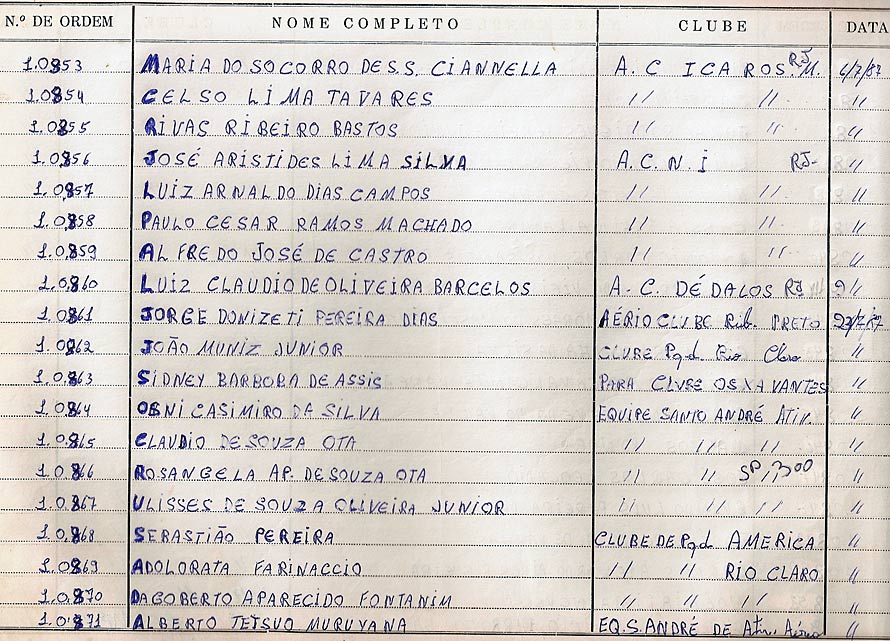 N.º DE ORDEM NOME COMPLETO CLUBE DATA
1.0853 MARIA DO SOCORRO DE S.S. CIANNELLA A. C ICAROS. RJ 6/7/87
1.0854 CELSO LIMA TAVARES // // //
1.0855 RIVAS RIBEIRO BASTOS // // //
1.0856 JOSÉ ARISTIDES LIMA SILVA A.C.N.I RJ- //
1.0857 LUIZ ARNALDO DIAS CAMPOS // // //
1.0858 PAULO CESAR RAMOS MACHADO // // //
1.0859 ALFREDO JOSÉ DE CASTRO // // //
1.0860 LUIZ CLAUDIO DE OLIVEIRA BARCELOS A.C. DÉDALOS RJ //
1.0861 JORGE DONIZETI PEREIRA DIAS AÉRIO CLUBE Rib. PRETO
1.0862 JOÃO MUNIZ JUNIOR CLUBE Pqd. Rio Claro //
1.0863 SIDNEY BARBOBA DE ASSIS PARA CLUBE OS XAVANTES //
1.0864 OSNI CASIMIRO DA SILVA EQUIPE SANTO ANDRÉ //
1.0865 CLAUDIO DE SOUZA OTA // // // //
1.0866 ROSANGELA AP. DE SOUZA OTA // // SP //
1.0867 ULISSES DE SOUZA OLIVEIRA JUNIOR // // // // //
1.0868 SEBASTIÃO PEREIRA CLUBE DE Pqd AMERICA //
1.0869 ADOLORATA FARINACCIO // // RIO CLARO //
1.0870 DAGOBERTO APARECIDO FONTANIM // // // //
1.0871 ALBERTO TETSUO MURUYANA EQ. S. ANDRÉ DE //